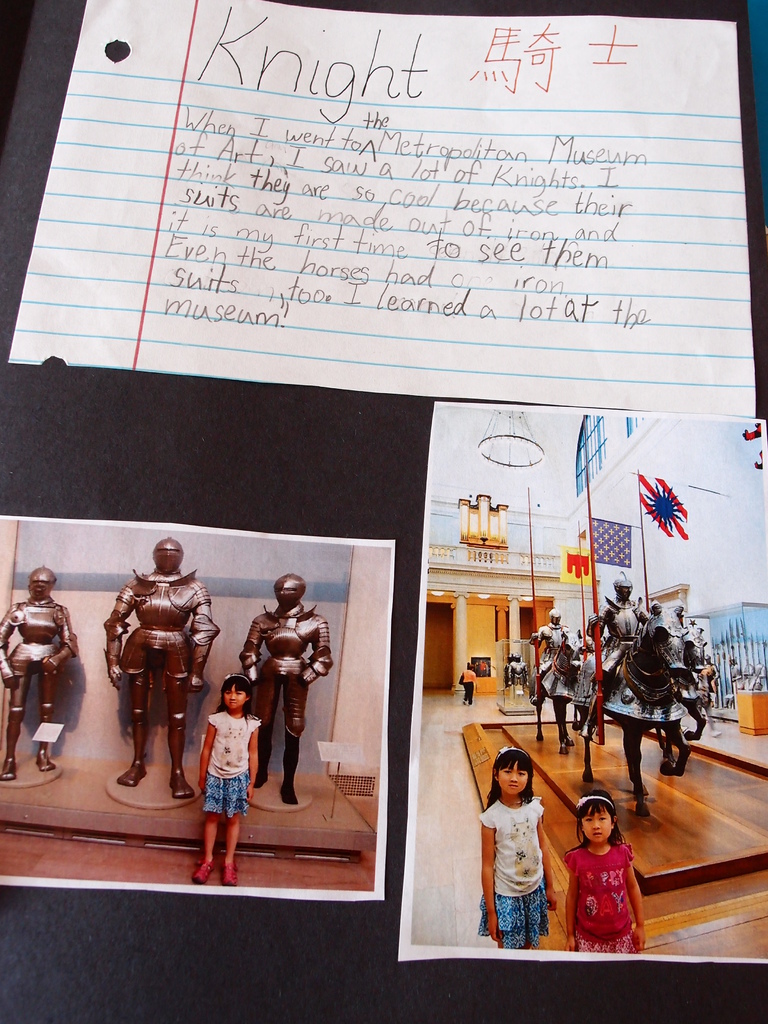 Knight 騎士
the
When I went to ^ Metropolitan Museum
of Art, I saw a lot of Knights. I
think they are so cool because their
suits are made out of iron and
it is my first time to see them
Even the horses had iron
suits , too. I learned a lot at the
museum!